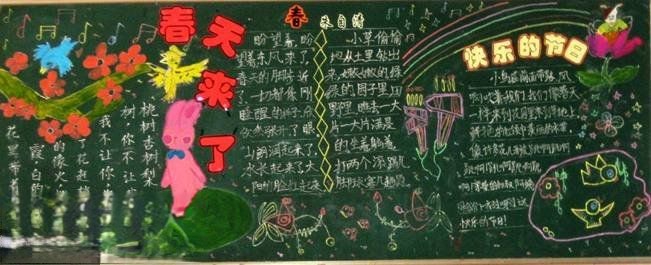 春天来了
春 朱自清
盼望着,盼
望着,东风来了,
春天的脚步近
了。一切都像刚
睡醒的样子,欣
欣然张开了眼。
山朗润起来了,
水长起来了,太
阳的脸红起来
小草偷偷
地从土里钻出
来,嫩嫩的,绿
绿的。园子里,田
野里,瞧去,一大
片一大片满是
的。坐着,躺着,
打两个滚,踢几
脚球,赛几趟跑
桃树杏树梨
树你不让
我不让你
了花赶
的像火
霞白的
花里带着
快乐的节日
小鸟在前面带路,风
儿吹着我们,我们像春天
一样,来到花园里,来到草地上
鲜艳的红领巾,美丽的衣裳
像许多花儿
快乐的节日